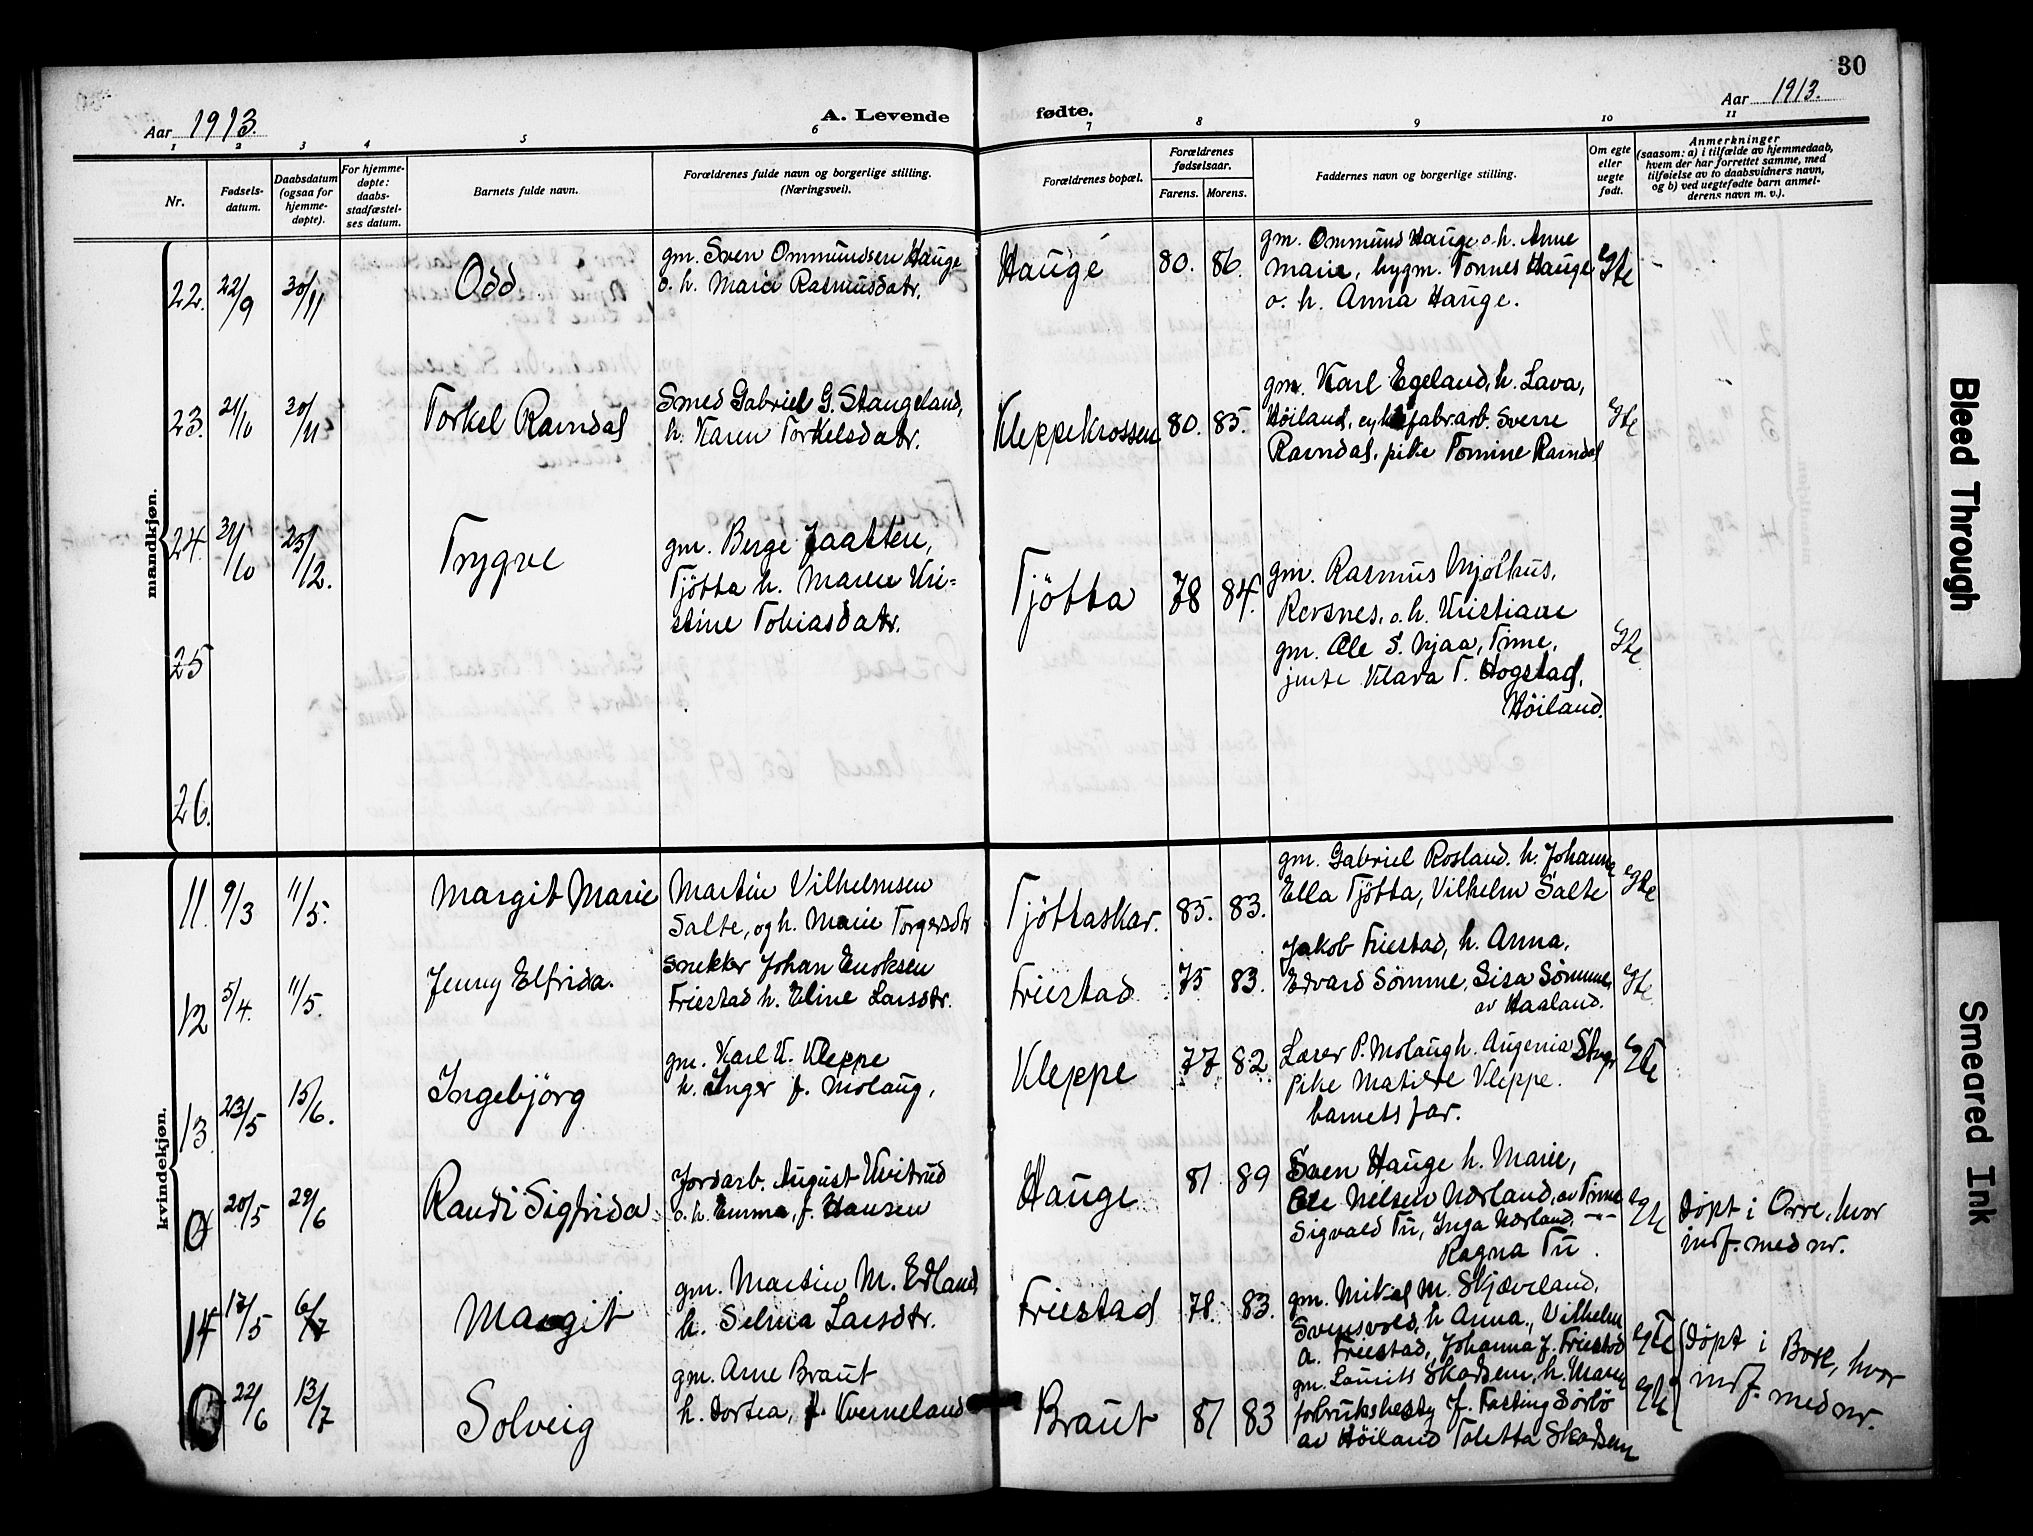 30
Aar 1913.
A. Levende fødte.
Aar 1913.
1 2 3 4 5 6 7 8 9 10 11
Nr.
Fødsels-
datum.
Daabsdatum
(ogsaa for
hjemme-
døpte).
For hjemme-
døpte:
daabs-
stadfæstel-
ses datum.
Barnets fulde navn.
Forældrenes fulde navn og borgerlige stilling.
(Næringsvei).
Forældrenes bopæl.
Forældrenes
fødselsaar.
Farens. Morens.
Faddernes navn og borgerlige stilling.
Om egte
eller
uegte
født.
Anmerkninger
(saasom: a) i tilfælde av hjemmedaab,
hvem der har forrettet samme, med
tilføielse av to daabsvidners navn,
og b) ved uegtefødte barn anmel-
derens navn m. v.).
mandkjøn.
22. 22/9 30/11
Odd
gm. Sven Ommundsen Hauge
o. h. Marie Rasmusdatr.
Hauge 80. 86.
gm. Ommund Hauge o. h. Anne
Marie, bygm. Tonnes Hauge
o. h. Anna Hauge.
Egte
23. 21/10 30/11
Torkel Ravndal
Smed Gabriel G. Stangeland,
h. Karen Torkelsdatr.
Kleppekrossen 80. 85.
gm. Karl Egeland, h. Lava,
Høiland, fabr.arb. Sverre
Ravndal, pike Tomine Ravndal
Egte
24. 31/10 25/12.
Trygve
gm. Berge Jaatten,
Tjötta h. Maren Kri=
stine Tobiasdatr.
Tjötta 78 84.
gm. Rasmus Mjølhus,
Revsnes, o. h. Kristiane
gm. Ole S. Njaa, Time,
jente Klara T. Hogstad,
Høiland.
Egte
25
26.
kvindekjøn.
11. 9/3 11/5.
Margit Marie
Martin Vilhelmsen
Salte, og h. Marie Torgersdtr
Tjöttaskar. 85. 83.
gm. Gabriel Rosland. h. Johanne
Ella Tjötta, Vilhelm Salte
Egte
12 5/4. 11/5.
Jenny Elfrida.
Snekker Johan Enoksen
Friestad h. Eline Larsdtr.
Friestad 75 83.
Jakob Friestad, h. Anna,
Edvard Sömme, Sisa Sömme,
av Haaland.
Egte
13. 23/5 15/6.
Ingebjörg
gm. Karl K. Kleppe
h. Inger f. Molaug,
Kleppe 77 82.
Lærer P. Molaug h. Augenia
Pike Matilde Kleppe.
barnets far.
Egte
0 20/5 29/6
Randi Sigfrida
Jordarb. August Kvitrud
o. h. Emma, f. Hansen
Hauge 81 89
Sven Hauge h. Marie,
Ole Nelsen Nærland, av Time
Sigvald Tu, Inga Nærland. -"-
Ragna Tu.
Egte
Döpt i Orre, hvor
indf. med nr.
14 17/5 6/7
Margit
gm. Martin M. Edland
h. Selma Larsdtr.
Friestad 78. 83.
gm. Mikal M. Skjæveland,
Svensvold, h Anna., Vilhelm
a. Friestad, Johanna J. Friestad
Egte
0 22/6 13/7
Solveig
gm. Arne Braut
h. Dortea, f. Kverneland
Braut 81 83
gm. Laurits Skadsem, h. Maren
forbruksbesty J. Fasting Sörbö
av Høiland Toletta Skadsem
Egte
Döpt i Bore, hvor
indf. med nr.
Bleed Through
Smeared Ink